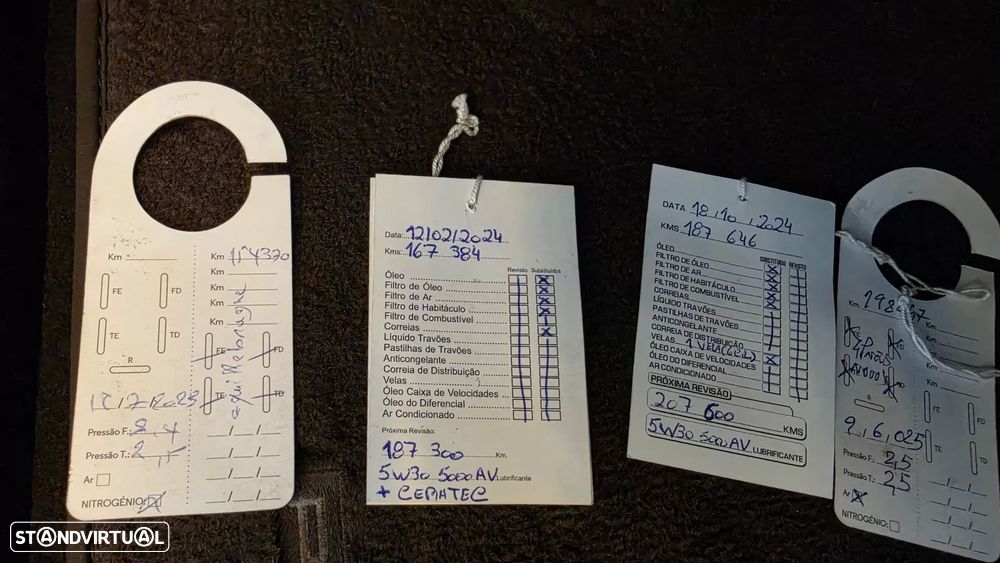 Km
Km
Km
Km
Km
Km
FE
FD
TE
TD
R
FE
FD
TE
TD
equi Rebragre
Pressão F.:
Pressão T.: 2
Ar
NITROGÉNIO:
Data: 12/02/2024
Kms: 167 384
Revisto Substituídos
Óleo
Filtro de Óleo
Filtro de Ar
Filtro de Habitáculo
Filtro de Combustível
Correias
Líquido Travões
Pastilhas de Travões
Anticongelante
Correia de Distribuição
Velas
Óleo Caixa de Velocidades
Óleo do Diferencial
Ar Condicionado
Próxima Revisão:
187 300 Km.
5W30 5000AV Lubrificante
+ CERATEC
DATA 18,10,2024
KMS 187 646
SUBSTITUIDO REVISTO
ÓLEO
FILTRO DE ÓLEO
FILTRO DE AR
FILTRO DE HABITÁCULO
FILTRO DE COMBUSTÍVEL
CORREIAS
LÍQUIDO TRAVÕES
PASTILHAS DE TRAVÕES
ANTICONGELANTE
CORREIA DE DISTRIBUIÇÃO
VELAS 1 VELA
ÓLEO CAIXA DE VELOCIDADES
ÓLEO DO DIFERENCIAL
AR CONDICIONADO
PRÓXIMA REVISÃO
207 600 KMS
5W30 5000AV LUBRIFICANTE
Km
Km
Km
Km
Km
Km
4 PNEUS
NOVOS
R
FE
FD
TE
TD
9,6,025
Pressão F.: 2,5
Pressão T.: 2,5
Ar
NITROGÉNIO:
STANDVIRTUAL